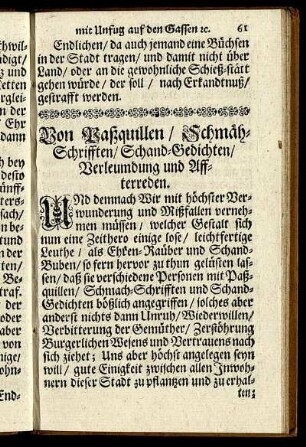 mit Unfug auf den Gassen ꝛc. 61
Endlichen/ da auch jemand eine Büchsen
in der Stadt tragen/ und damit nicht über
Land/ oder an die gewohnliche Schieß-stätt
gehen würde/ der soll/ nach Erkandtnuß/
gestrafft werden.
Von Paßquillen/ Schmäh-
Schrifften/ Schand-Gedichten/
Verleumbdung und Aff-
terreden.
UNd demnach Wir mit höchster Ver-
wunderung und Mißfallen verneh-
men müssen/ welcher Gestalt sich
nun eine Zeithero einige lose/ leichtfertige
Leuthe/ als Ehren-Räuber und Schand-
Buben/ so fern hervor zu thun gelüsten las-
sen/ daß sie verschiedene Personen mit Paß-
quillen/ Schmach-Schrifften und Schand-
Gedichten bößlich angegriffen/ solches aber
anderst nichts dann Unruh/ Wiederwillen/
Verbitterung der Gemüther/ Zerstöhrung
Burgerlichen Wesens und Vertrauens nach
sich ziehet; Uns aber höchst angelegen seyn
will/ gute Einigkeit zwischen allen Inwoh-
nern dieser Stadt zu pflantzen und zu erhal-
ten;